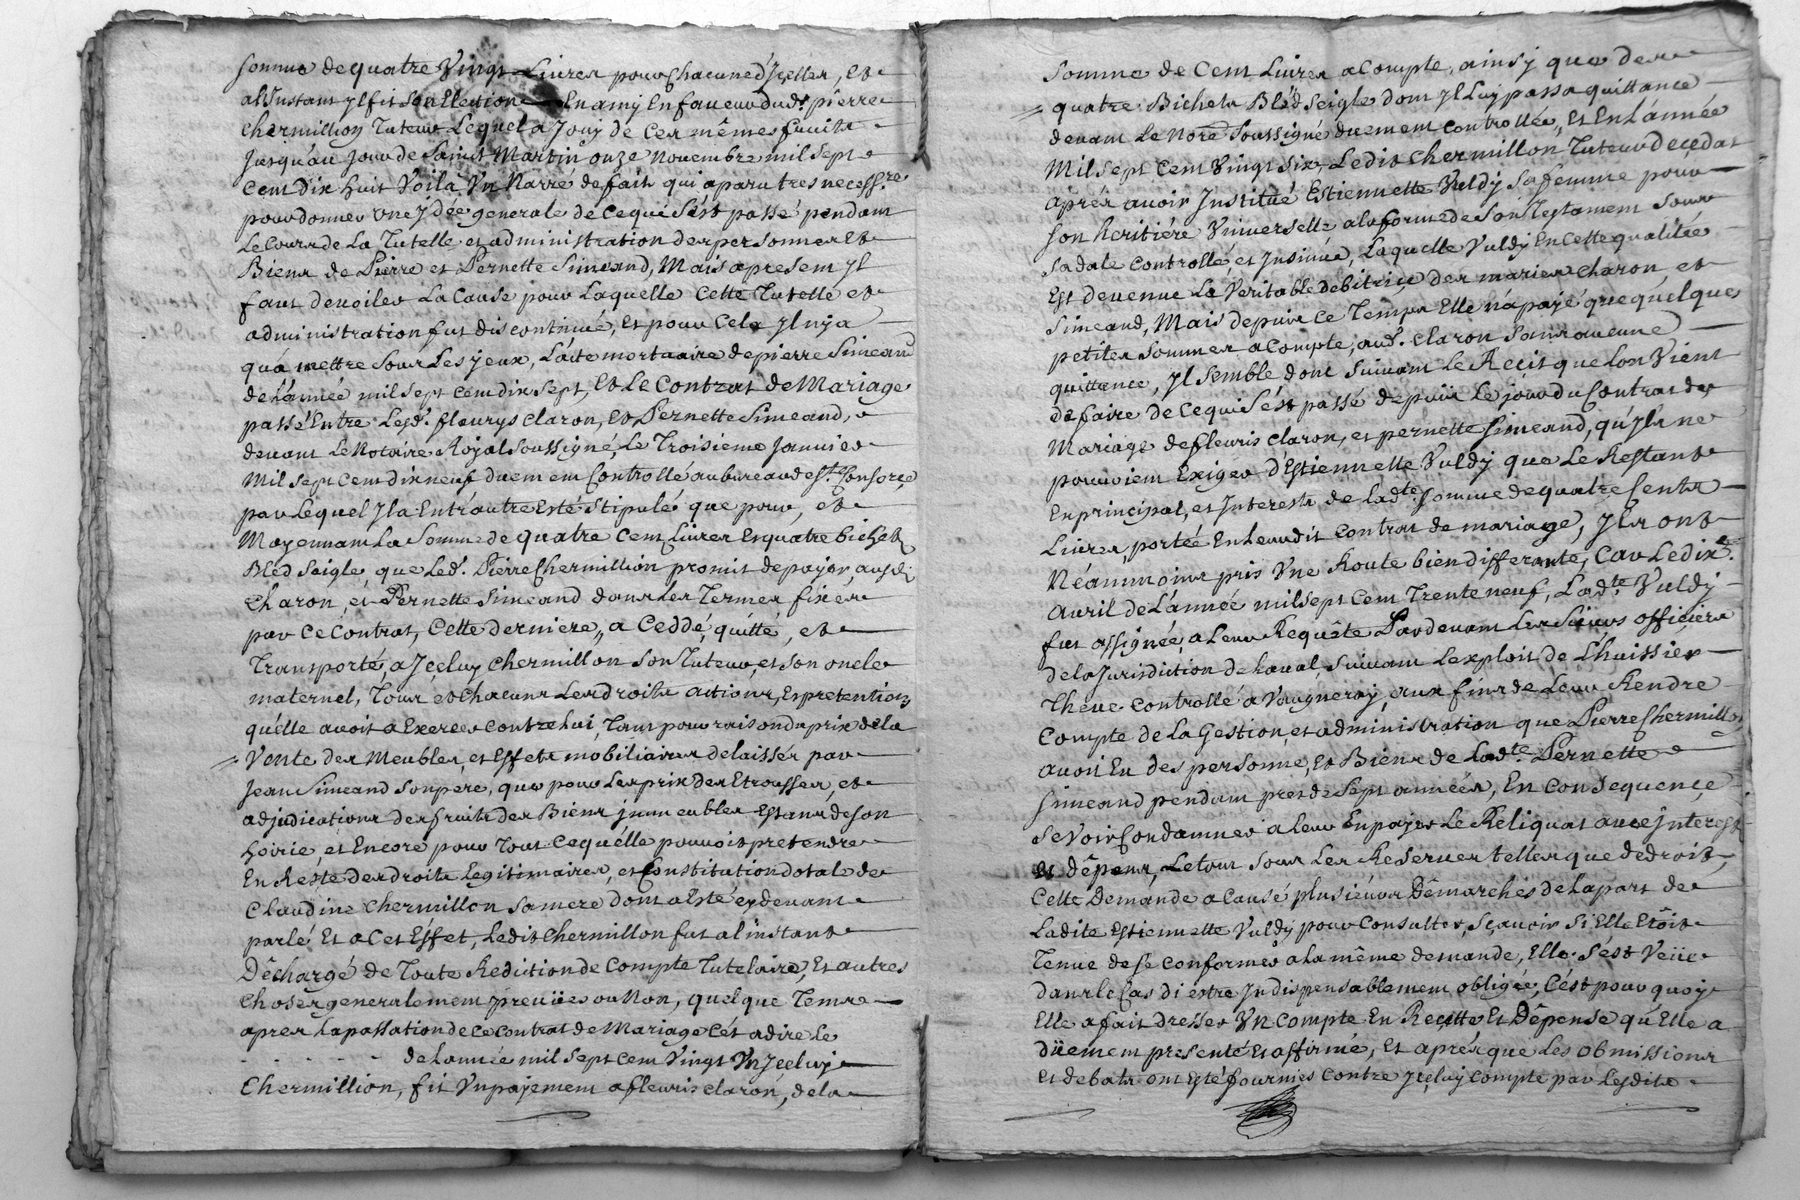 somme de quatre Vingt Livres pour Chacune d'Jcelles, et
a l'Instant yl fit son Election En amy En faveur dud.t pierre
chermillion Tuteur Lequel a Jouy de Ces mêmes fruits
Jusqu'au Jour de Saint Martin onze novembre mil sept
cent dix huit Voila Vn Narré de fait qui a paru tres necess.re
pour donner Vne jdée generale de Ce qui S'est passé pendant
Le Cours de La Tutelle et administration des personnes Et
Biens de Pierre et Pernette Simeand, Mais apresent yl
faut devoiler La Cause pour Laquelle Cette Tutelle et
administration fut discontinuée, Et pour Cela yl n'ya
qu'a mettre Sour Les yeux, L'acte mortuaire de pierre Simeand
de L'année mil sept cent dix sept, Et Le Contrat de Mariage
passé Entre Lesd.t fleurys Claron, Et Pernette Simeand,
devant Le Notaire Royal Soussigné, Le Troisieme Janvier
Mil sept Cent dix neuf duement Controllé au bureau de s.te Consorce
par Lequel yl a Entr'autre Esté Stipulé que pour, et
Moyennant La Somme de quatre Cent Livres Et quatre bichets
Bled Seigle, que Led.t Pierre Chermillion promit de payer, ausd.
Charon, et Pernette Simeand dans Les Termes fixés
par Ce Contrat, Cette derniere, a Ceddé, quitté, et
Transporté, a Jceluy Chermillon Son Tuteur, et son oncle
maternel, Tous et Chacuns Les droits actions, Et pretentions
qu'elle avoit a Exercer Contre Lui, Tant pour raison du prix de la
Vente des Meubles, et Effets mobiliaires delaissés par
Jean Simeand Son pere, que pour Les prix des Etrousses, et
adjudications des fruits des Biens jmmeubles Estant de son
hoirie, et Encore pour Tout Ce qu'elle pouvoit pretendre
En Reste des droits Legitimaires, et Constitution dotale de
Claudine Chermillon Sa mere dont a Esté cy devant
parlé Et a Cet Effet, Ledit Chermillon fut a l'instant
Dêchargé de Toute Redition de Compte Tutelaire, Et autres
Choses generalement preuües ou Non, quelque Tems
apres La passation de Ce Contrat de Mariage C'est a dire Le
de Lannée mil Sept cent Vingt Vn Jceluy
Chermillion, fit Vn payement a fleuris Claron, de la
Somme de Cent Livres a Compte, ainsy que des
quatre Bichets Bléd Seigle dont yl Luy passa quittance
devant Le No.re Soussigné duement Controllée, Et En L'année
Mil Sept Cent Vingt Six, Ledit Chermillon Tuteur deçedat
aprés avoir Jnstitué Estiennette Vuldy Sa femme pour
Son heritiére Vniverselle a la forme de Son Testament Sous
Sa date Controllé, et Jnsinué, Laquelle Vuldy En Cette qualitée
Est devenue La Veritable debitrice des mariés Charon et
Simeand, Mais depuis Ce Temps Elle n'a payé que quelques
petites Sommes a Compte, aud.t Claron Sans aucune
quittance, yl Semble donc Suivant Le Recit que Lon Vient
de faire de Ce qui S'est passé depuis Le jour du Contrat de
Mariage de fleuris Claron, et pernette Simeand, qu'yls ne
pouvoient Exiger d'Estiennette Vuldy que Le Restant
En principal, et Interests de lad.te Somme de quatre Cents
Livres portée En Leurdit Contrat de mariage, yls ont
Néanmoins pris Vne Route bien differante, Car Le dix
avril de L'année mil sept cent Trente neuf, Lad.te Vuldy
fut assignée, a Leur Requête Pardevant Les Sieurs officiers
de la Jurisdiction de Laval, Suivant L'exploit de L'huissier
Theve Controllé a Vaugneray, aux fins de Leur Rendre
Compte de La Gestion, et administration que Pierre Chermillon
avoit Eu des personne, Et Biens de Lad.te Pernette
Simeand pendant prés de Sept années, En Consequence
Se Voir Condamner a Leur En payer Le Reliquat avec Jnterest
Et dêpens, Le tout Sous Les Reserves telles que de droit,
Cette Demande a Causé plusieurs Dêmarches de La part de
La dite Estiennette Vuldy pour Consulter, Sçavoir Si Elle Etoit
Tenue de se Conformer a la même demande, Elle S'est Veüe
dans le Cas d'i estre Jndispensablement obligée, C'est pour quoy
Elle a fait dresser Vn Compte En Recette Et Dêpense qu'Elle a
düement presenté Et affirmé, Et aprés que Les obmissions
Et debats ont Esté fournies Contre Jceluy Compte par Lesdits